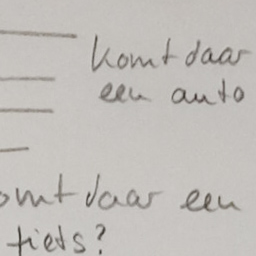 komt daar
een auto
omt daar een
fiets?